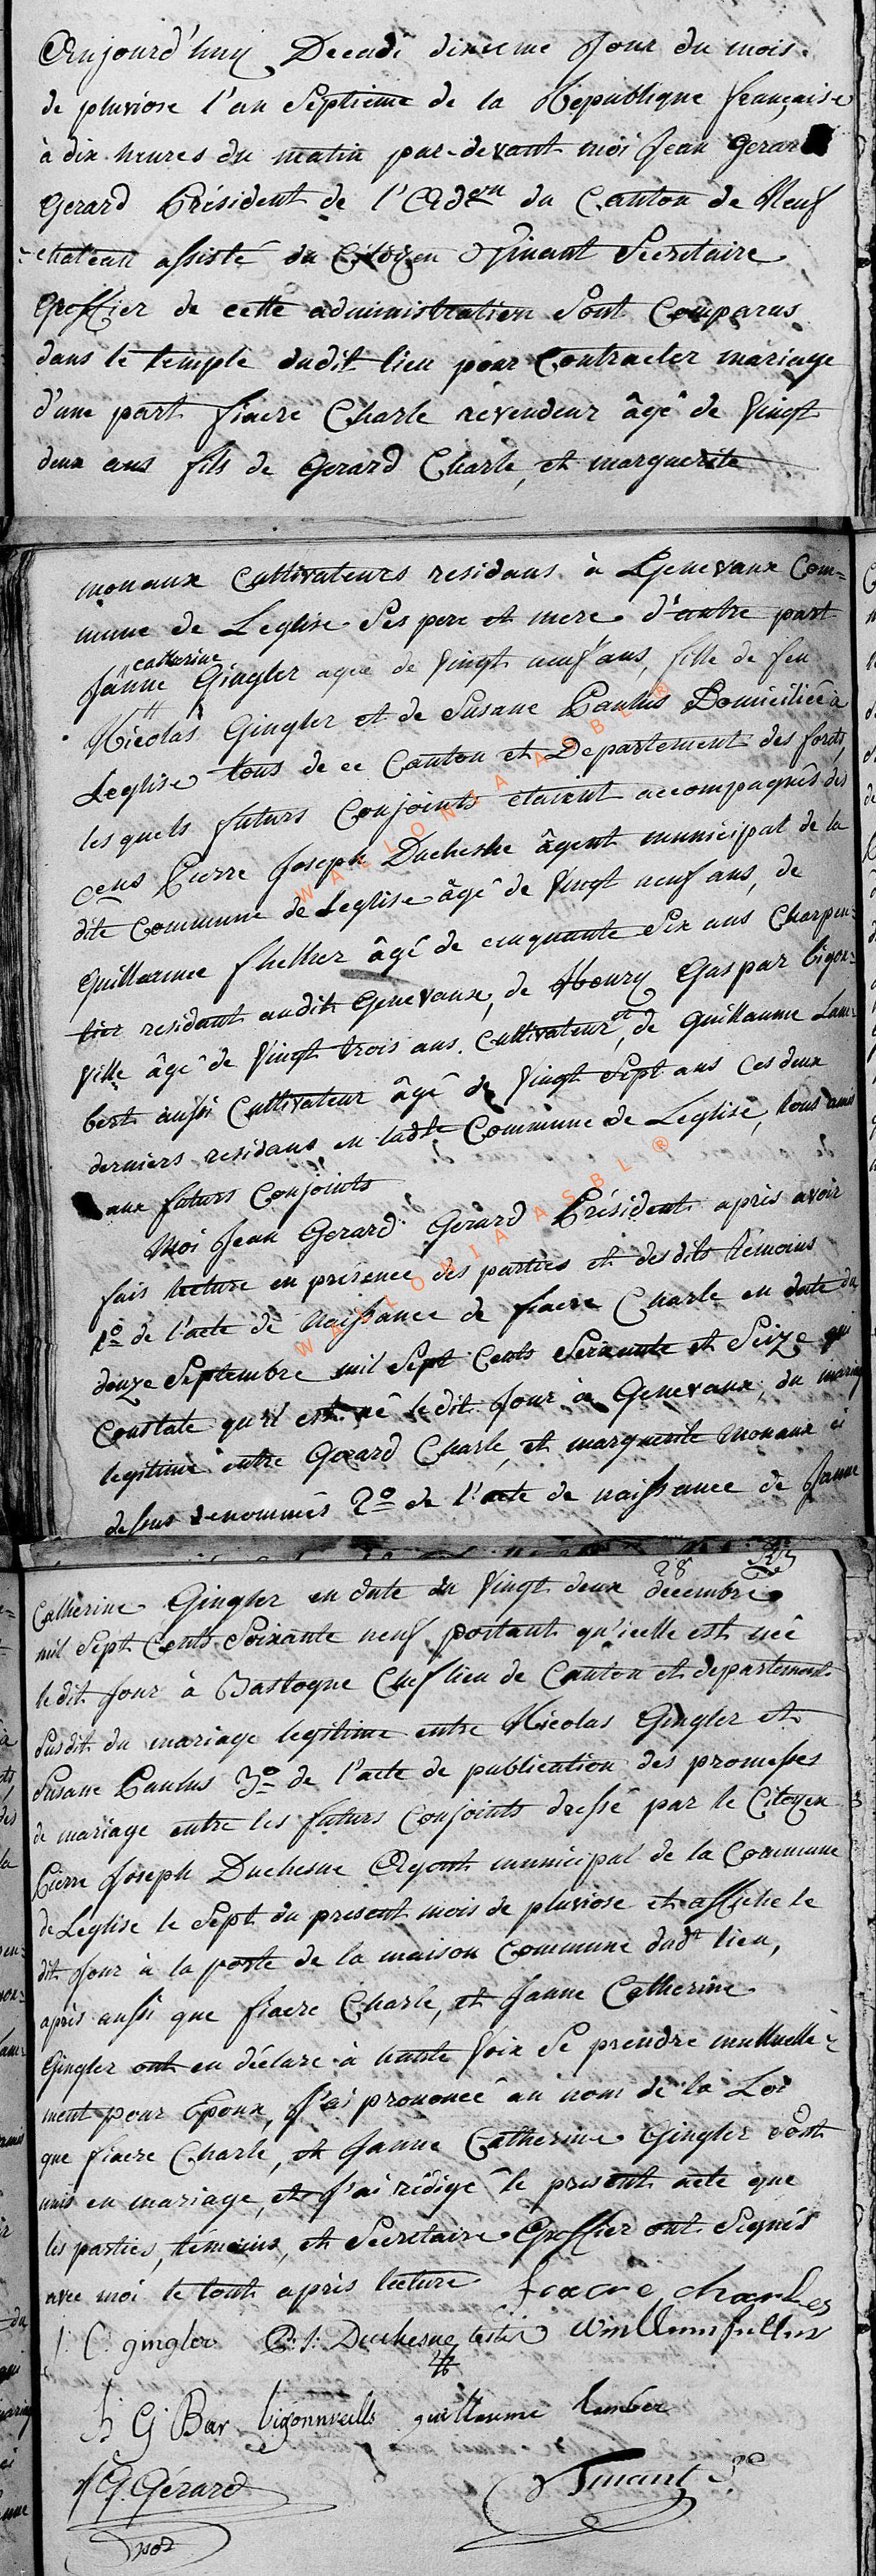 Aujourd'huy Decadi dixieme Jour du mois
de pluviose l'an Septieme de la Republique française
à dix heures du matin par-devant moi Jean Gerard
Gerard Président de l'Adon du Canton de Neuf
chateau assisté du Citoyen Dinant Secretaire
Greffier de cette administration Sont Comparus
dans le temple dudit lieu pour Contracter mariage
d'une part fiacre Charle revendeur âgé de Vingt
deux ans fils de Gerard Charle, et marguerite
monaux Cultivateurs residans à Genevaux Com=
mune de Leglise Ses pere et mere d'autre part
catherine
Janne Gingler agée de Vingt neuf ans, fille de feu
Nicolas Gingler et de Susane Paulus Domiciliée à
Leglise tous de ce Canton et Departement des forêts,
les quels futurs Conjoints étaient accompagnés des
cens Pierre Joseph Duchesne âgent municipal de la
dite Commune de Leglise âgé de Vingt neuf ans, de
Guillaume fheller âgé de cinquante Six ans Charpen=
tier residant audit Genevaux, de henry Gaspar bigon=
ville âgé de Vingt trois ans Cultivateur et de Guillaume Lam=
bert aussi Cultivateur âgé de Vingt Sept ans ces deux
derniers residans en ladte Commune de Leglise, tous amis
aux futurs Conjoints
Moi Jean Gerard Gerard Président après avoir
fais lecture en presence des parties et des dits témoins
1o de l'acte de Naissance de fiacre Charle en date du
douze Septembre mil Sept Cents Seixante et Seize qui
Constate qu'il est né le dit Jour à Genevaux, du mariag
legitime entre Gerard Charle, et marguerite monaux ci
dessus denommés 2o de l'acte de naissance de Janne
28
Catherine Gingler en date du Vingt deux decembre
mil Sept Cents Soixante neuf portant qu'icelle est née
ledit Jour à Bastogne Chef lieu de Canton et departement
Susdit du mariage legitime entre Nicolas Gingler et
Susane Paulus 3o de l'acte de publication des promesses
de mariage entre les futurs Conjoints dressé par le Citoyen
Pierre Joseph Duchesne Agent municipal de la Commune
de Leglise le Sept du present mois de pluviose et affiche le
dit Jour à la porte de la maison Commune dudt lieu,
après aussi que fiacre Charle, et Janne Catherine
Gingler ont eu déclare à haute Voix Se prendre mutuelle=
ment pour Epoux, J'ai prononcé au nom de la Loi
que fiacre Charle, et Janne Catherine Gingler Sont
unis en mariage, et J'ai rédigé le present acte que
les parties, témoins, et Secretaire Greffier ont Signés
avec moi le tout après lecture fiacre charles
J: C: gingler P: J: Duchesne testis Willem fuller
h G Bar bigonnveills guillaume lamber
J G. Gérard
Dinant
WALLONIA ASBL ®
WALLONIA ASBL ®